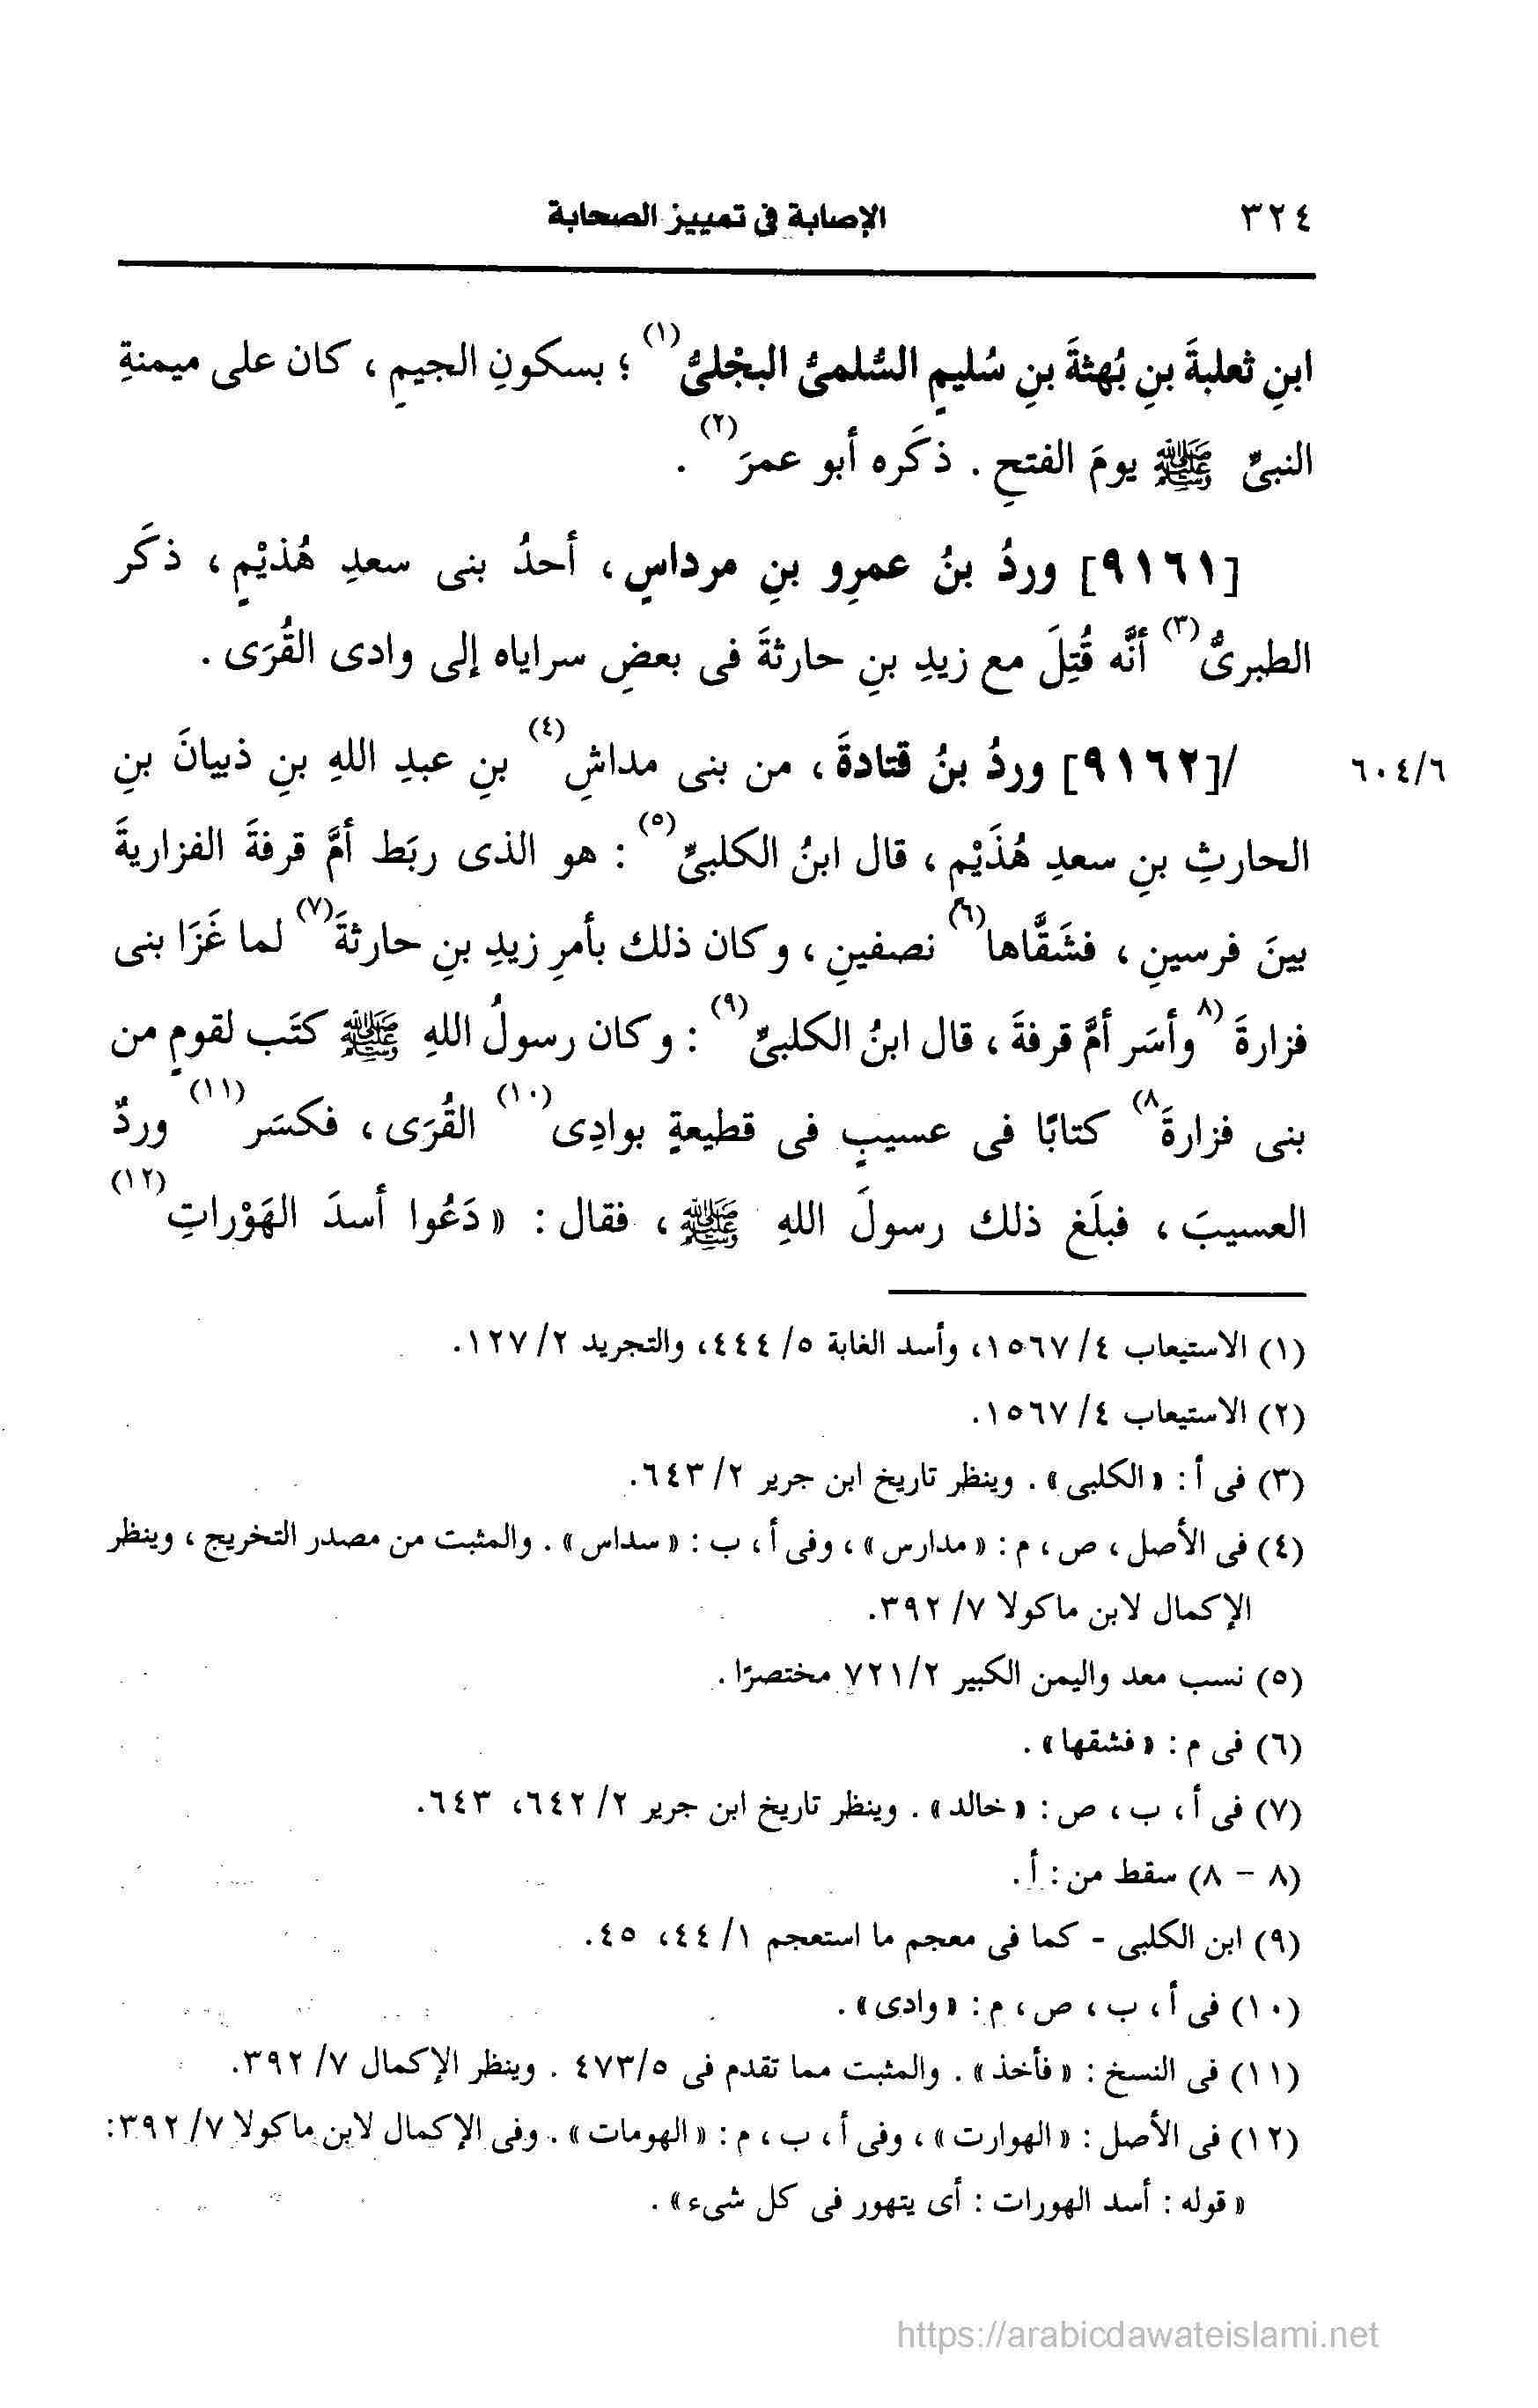 ٣٢٤ الإصابة فى تمييز الصحابة
ابنِ ثعلبةَ بنِ بُهثةَ بنِ سُليمٍ السُّلمىُّ البجْلىُّ(١) ؛ بسكونِ الجيمِ ، كان على ميمنةِ
النبىِّ ﷺ يومَ الفتحِ . ذكَره أبو عمرَ(٢) .
[٩١٦١] وردُ بنُ عمرِو بنِ مرداسٍ، أحدُ بنى سعدِ هُذيْمٍ، ذكَر
الطبرىُّ(٣) أنَّه قُتِلَ مع زيدِ بنِ حارثةَ فى بعضِ سراياه إلى وادى القُرَى .
٦٠٤/٦ /[٩١٦٢] وردُ بنُ قتادةَ، من بنى مداشِ(٤) بنِ عبدِ اللهِ بنِ ذبيانَ بنِ
الحارثِ بنِ سعدِ هُذَيْمٍ ، قال ابنُ الكلبىِّ(٥) : هو الذى ربَط أمَّ قرفةَ الفزاريةَ
بينَ فرسينِ ، فشَقَّاها(٦) نصفينِ ، وكان ذلك بأمرِ زيدِ بنِ حارثةَ(٧) لما غَزَا بنى
فزارةَ (٨وأسَر أمَّ قرفةَ ، قال ابنُ الكلبىِّ(٩) : وكان رسولُ اللهِ ﷺ كتَب لقومٍ من
بنى فزارةَ٨) كتابًا فى عسيبٍ فى قطيعةٍ بوادِى(١٠) القُرَى ، فكسَر(١١) وردٌ
العسيبَ ، فبلَغ ذلك رسولَ اللهِ ﷺ ، فقال : « دَعُوا أسدَ الهَوْراتِ(١٢)
(١) الاستيعاب ٤/ ١٥٦٧، وأسد الغابة ٥/ ٤٤٤، والتجريد ٢/ ١٢٧.
(٢) الاستيعاب ٤/ ١٥٦٧.
(٣) فى أ : « الكلبى » . وينظر تاريخ ابن جرير ٢/ ٦٤٣.
(٤) فى الأصل ، ص ، م : « مدارس » ، وفى أ ، ب : « سداس » . والمثبت من مصدر التخريج ، وينظر
الإكمال لابن ماكولا ٧/ ٣٩٢.
(٥) نسب معد واليمن الكبير ٢/ ٧٢١ مختصرًا .
(٦) فى م : « فشقها » .
(٧) فى أ ، ب ، ص : « خالد » . وينظر تاريخ ابن جرير ٢/ ٦٤٢، ٦٤٣.
(٨ - ٨) سقط من : أ .
(٩) ابن الكلبى - كما فى معجم ما استعجم ١/ ٤٤، ٤٥.
(١٠) فى أ ، ب ، ص ، م : « وادى » .
(١١) فى النسخ : « فأخذ » . والمثبت مما تقدم فى ٥/ ٤٧٣ . وينظر الإكمال ٧/ ٣٩٢.
(١٢) فى الأصل : « الهوارت » ، وفى أ ، ب ، م : « الهومات » . وفى الإكمال لابن ماكولا ٧/ ٣٩٢:
« قوله : أسد الهورات : أى يتهور فى كل شىء » .
https://arabicdawateislami.net